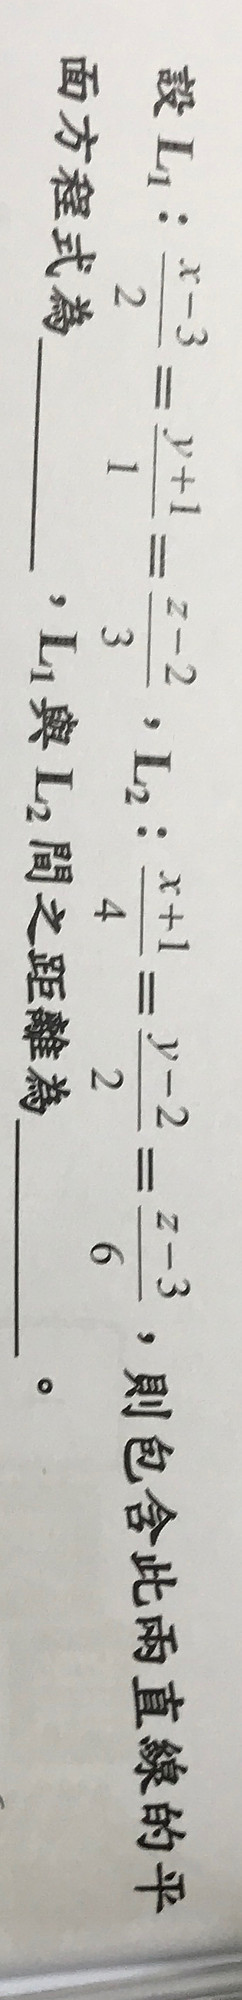 設 L₁：\frac{x-3}{2}=\frac{y+1}{1}=\frac{z-2}{3}，L₂：\frac{x+1}{4}=\frac{y-2}{2}=\frac{z-3}{6}，則包含此兩直線的平
面方程式為________，L₁與 L₂間之距離為________。